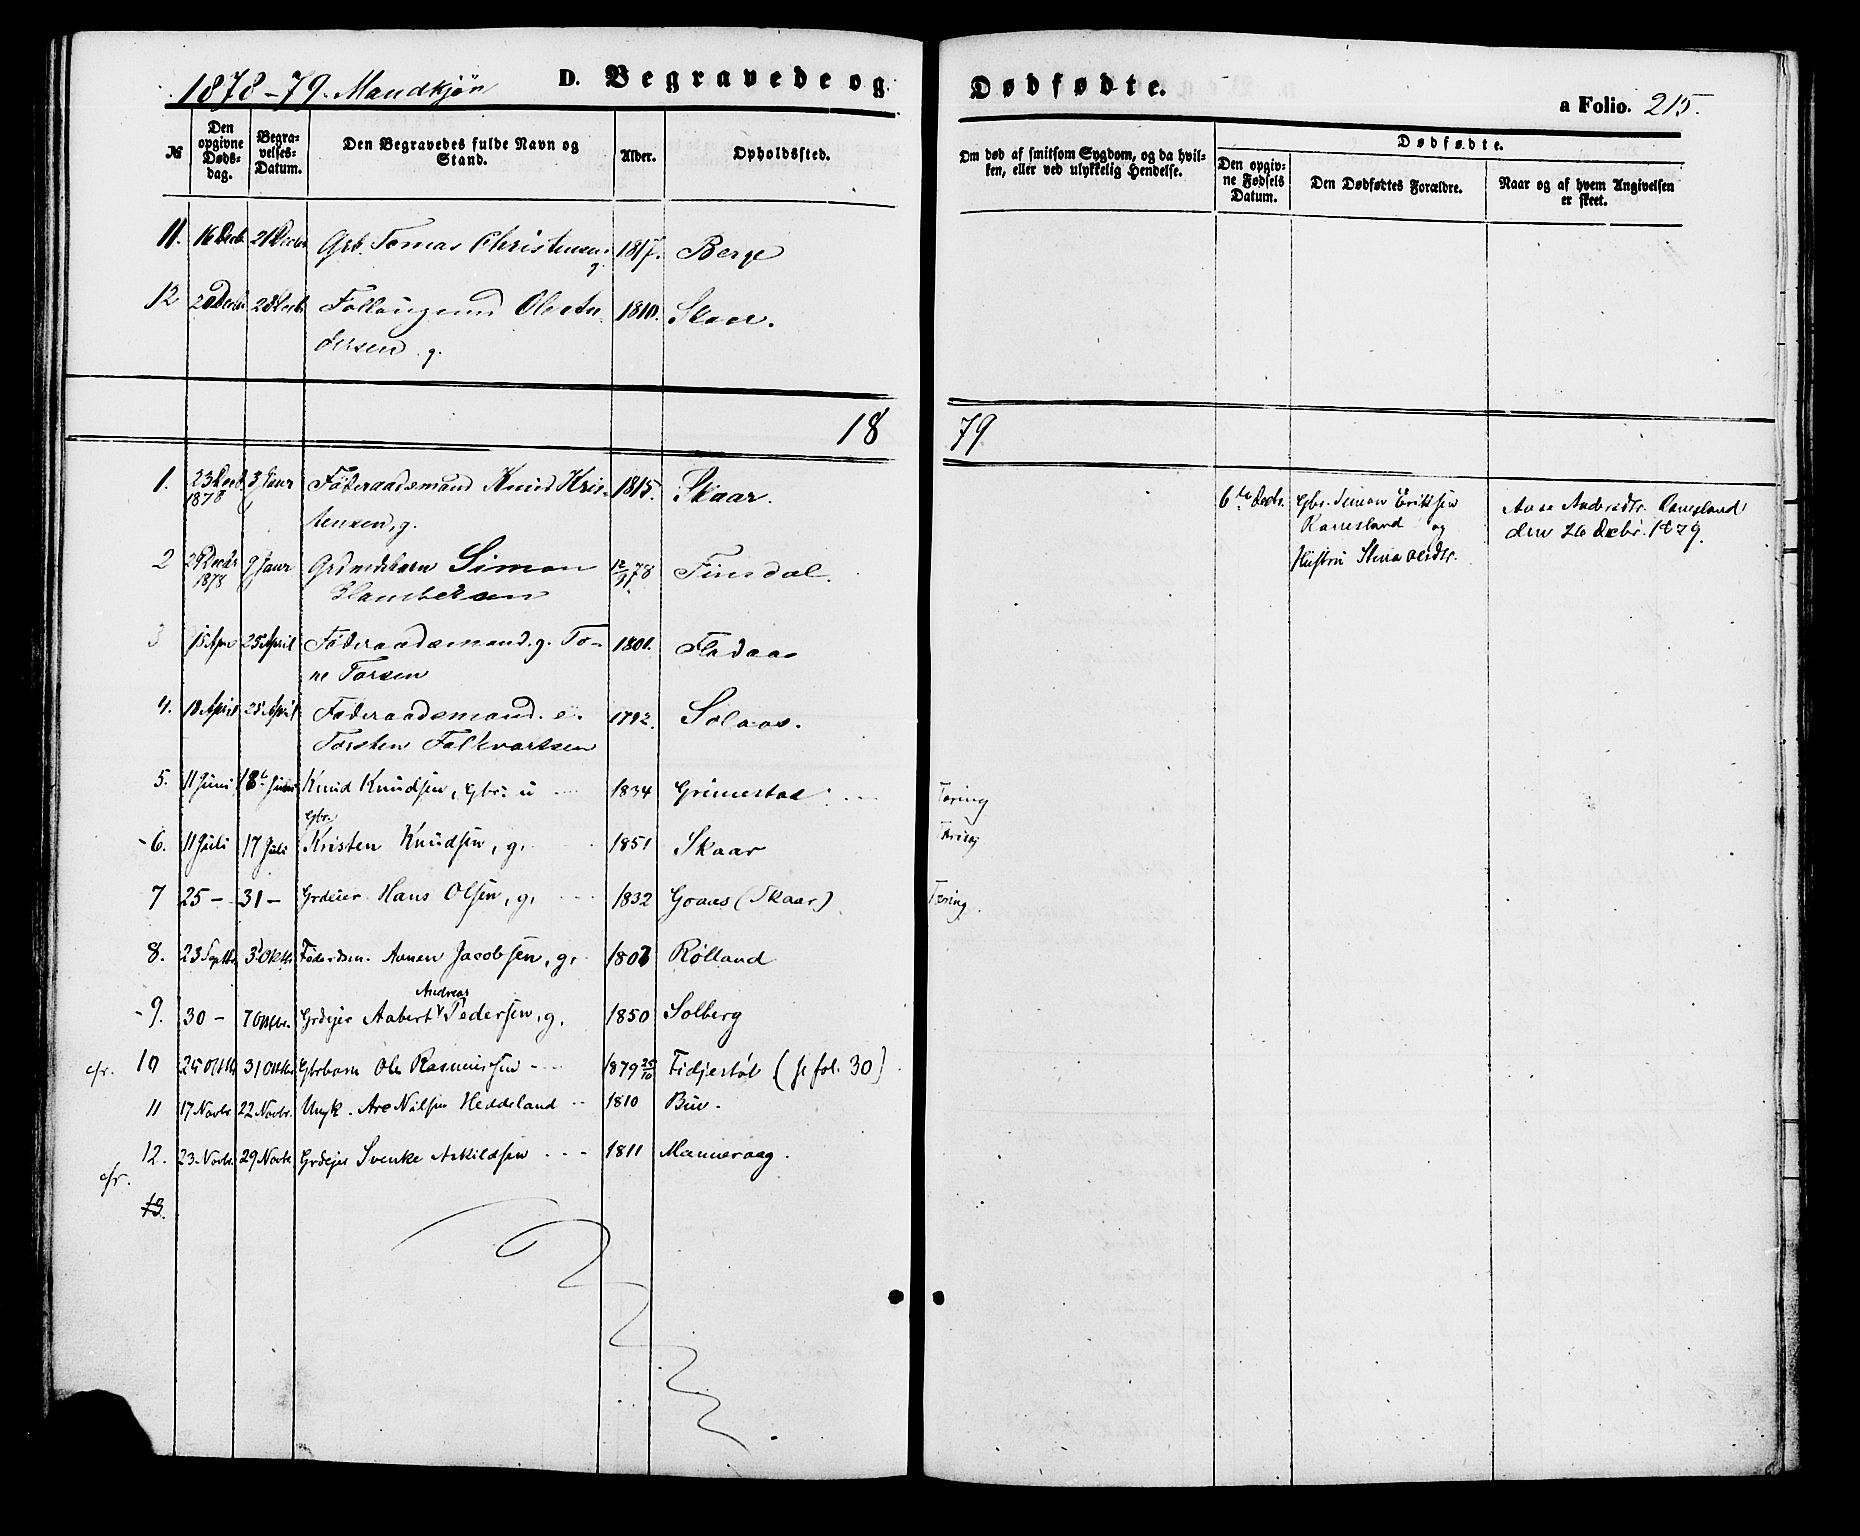 1878-79. Mandkjøn D. Begravede og Dødfødte. a Folio. 215.
№ Den opgivne Døds-dag. Begra-velses-Datum. Den Begravedes fulde Navn og Stand. Alder. Opholdssted. Om død af smitsom Sygdom, og da hvil-ken, eller ved ulykkelig Hendelse. Dødfødte.
Den opgiv-ne Fødsels Datum. Den Dødfødtes Forældre. Naar og af hvem Angivelsen er skeet.
11. 16 Decb 21 Decbr Grb. Tomas Christensen g. 1817. Berge
12 20 Decbr 28 Decb Ole An- 1810. Skaar.
dersen g.
1879
1. 23 Decb 1878 3 Januar Føderaadsmand Knud Kris- 1815. Skaar.
tensen, g.
6te Decbr. Gbr. Simon Eriksen
Ramsland og
Hustru Stina Olsdtr.
Aase Andersdtr. Ramsland
den 26 Decbr. 1879.
2 29 Decbr 1878 9 Janr Simon 12/9 78 Finsdal.
3 15 Apr 25 April Føderaadsmand. g. To- 1801. Fladaas
ne Torsen
4. 10 April 25 April Føderaadsmand. e. 1792. Solaas.
Torsten Falkvartsen
5. 11 Juni 18 Juni Knud Knudsen, Gbr. u 1834 Grimestad Tæring
Gbr.
-6. 11 Juli 17 Juli Kristen Knudsen, g. 1851 Skaar Tæring
7 25 - 31 - Grdeier Hans Olsen, g. 1832 Goaas (Skaar) Tæring.
8. 23 Septbr 3 Oktbr Jacobsen, g. Rølland
Andreas
-9. 30 - 7 Oktbr. Grdejer Aabert Pedersen, g. 1850 Solberg
cfr. 10 25 Oktb 31 Oktbr Gbrbarn Ole Rasmussen 1879 25/10 Fidjestøl (se fol. 30)
11 17 Novbr 22 Novbr. Ungk. Are Nilsen Heddeland 1810 Buv.
12. 23 Novbr. 29 Novbr Grdejer Svenke Askildsen 1811 Mannevaag.
cfr.
13.